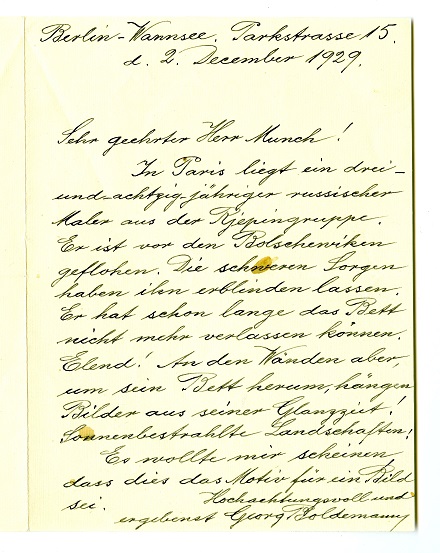 Berlin-Wannsee. Parkstrasse 15.
d. 2. December 1929.
Sehr geehrter Herr Munch!
In Paris liegt ein drei-
und-achtzig-jähriger russischer
Maler aus der Rjepingruppe.
Er ist vor den Bolschewiken
geflohen. Die schweren Sorgen
haben ihn erblinden lassen.
Er hat schon lange das Bett
nicht mehr verlassen können.
Elend! An den Wänden aber,
um sein Bett herum, hängen
Bilder aus seiner Glanzzeit!
Sonnenbestrahlte Landschaften!
Es wollte mir scheinen,
dass dies das Motiv für ein Bild
sei. Hochachtungsvoll und
ergebenst Georg Boldemann